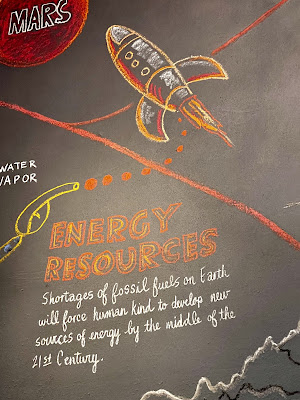 MARS
WATER
VAPOR
ENERGY
RESOURCES
Shortages of fossil fuels on Earth
will force human kind to develop new
sources of energy by the middle of the
21st Century.